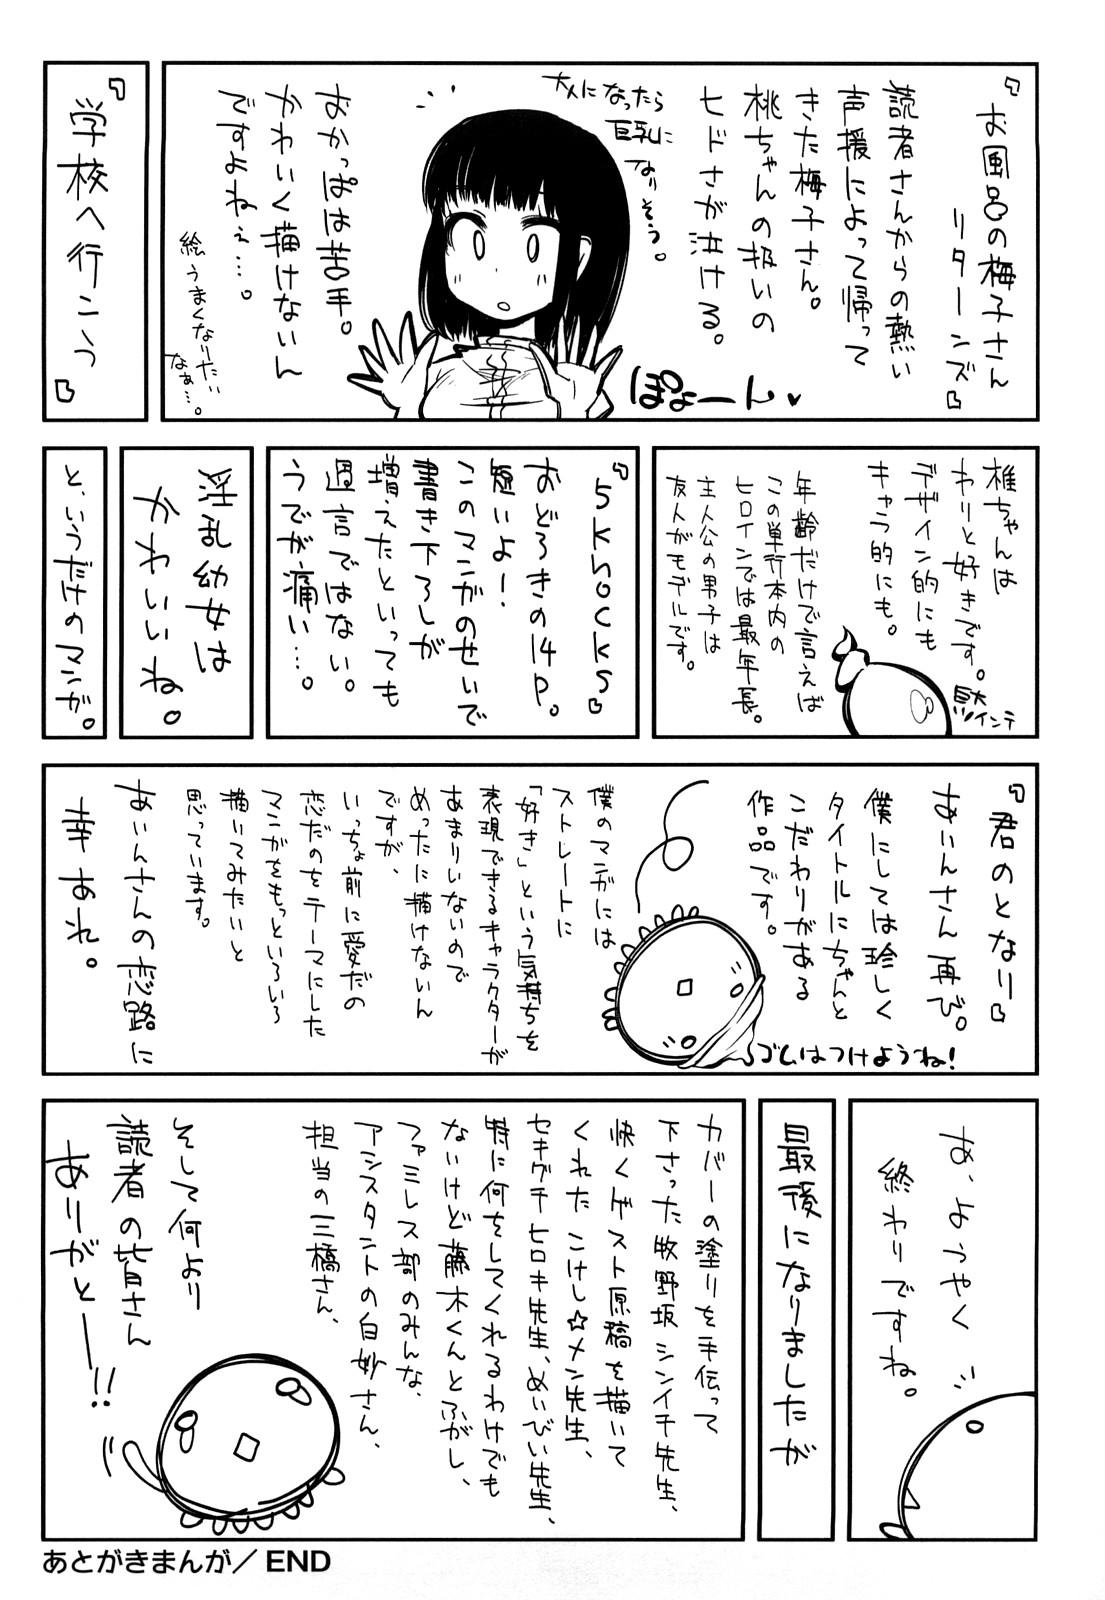 『お風呂の梅子さん
リターンズ』
読者さんからの熱い
声援によって帰って
きた梅子さん。
桃ちゃんの扱いの
ヒドさが泣ける。
おかっぱは苦手。
かわいく描けないん
ですよねぇ…。
絵うまくなりたい
なぁ…。
ぽよーん♥
『学校へ行こう』
椎ちゃんは
わりと好きです。
デザイン的にも
キャラ的にも。
年齢だけで言えば
この単行本内の
ヒロインでは最年長。
主人公の男子は
友人がモデルです。
『5knocks』
おどろきの14p。
短いよ!
このマンガのせいで
書き下ろしが
増えたといっても
過言ではない。
うでが痛い…。
と、いうだけのマンガ。
『君のとなり』
あいんさん再び。
僕にしては珍しく
タイトルにちゃんと
こだわりがある
作品です。
ゴムはつけようね!
僕のマンガには
ストレートに
「好き」という気持ちを
表現できるキャラクターが
あまりいないので
めったに描けないん
ですが、
いっちょ前に愛だの
恋だのをテーマにした
マンガをもっといろいろ
描いてみたいと
思っています。
あいんさんの恋路に
幸あれ。
あ、ようやく
終わりですね。
最後になりましたが
カバーの塗りを手伝って
下さった牧野坂シンイチ先生、
快くゲスト原稿を描いて
くれたこけし☆メン先生、
セキグチヒロキ先生、めいびい先生、
特に何をしてくれるわけでも
ないけど藤木くんとふがし、
ファミレス部のみんな、
アシスタントの白妙さん、
担当の三橋さん、
そして何より
読者の皆さん
ありがとーーー!!
あとがきまんが/END